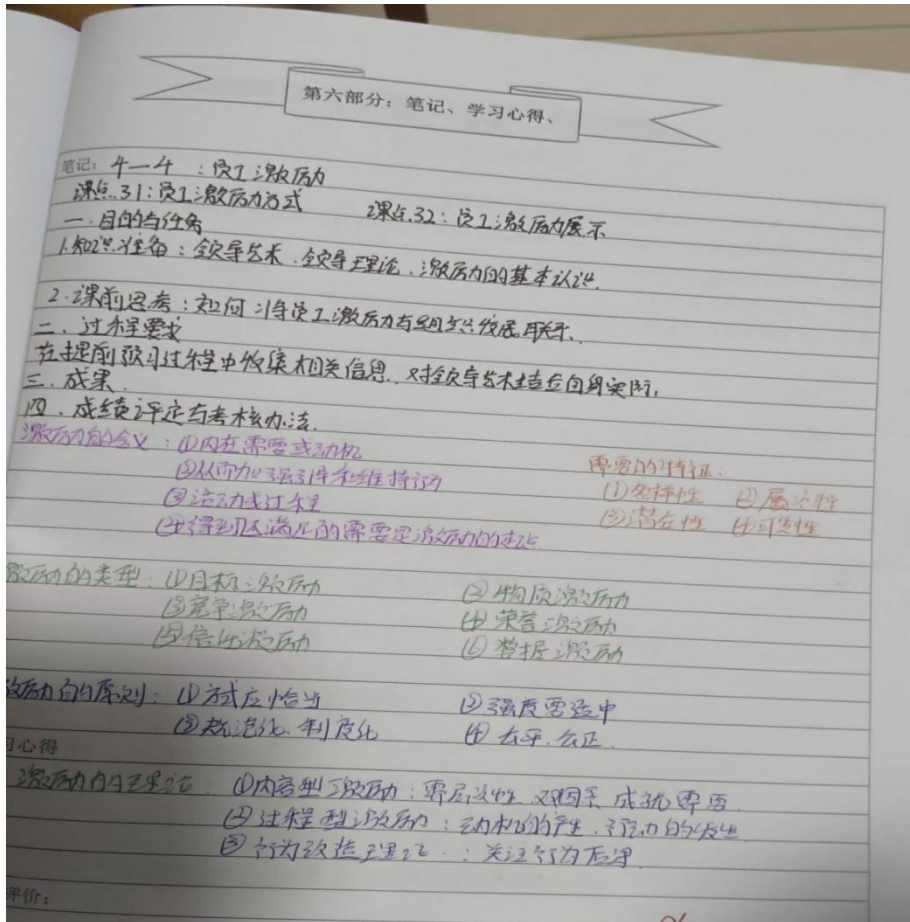 第六部分：笔记、学习心得、
笔记：4—4 ：员工激励
课点.31：员工激励方式 课点.32：员工激励展示
一.目的与任务
1.知识准备：领导艺术.领导理论.激励的基本认识.
2.课前思考：如何引导员工激励与组织发展联系.
二.过程要求
在提前预习过程中收集相关信息.对领导艺术结合自身实际.
三.成果.
四.成绩评定与考核办法.
激励的含义：①内在需要或动机
②从而加强引导和维持行为
③活动或过程
④得到满足的需要是激励的起点
需要的特征：
(1)多样性 (2)层次性
(3)潜在性 (4)可变性
激励的类型：①目标激励 ②物质激励
③竞争激励 ④荣誉激励
⑤信任激励 ⑥数据激励
激励的原则：①方式应恰当 ②强度要适中
③规范化.制度化 ④公平.公正.
习心得
激励的理论：①内容型激励：需层次性.双因素 成就需要.
②过程型激励：动机的产生.行动的发生
③行为改造理论：关注行为后果.
评价：